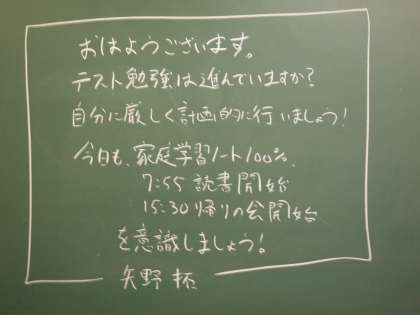 おはようございます。
テスト勉強は進んでいますか?
自分に厳しく計画的に行いましょう!
今日も、家庭学習ノート100%、
7:55 読書開始
15:30 帰りの会開始
を意識しましょう!
矢野 杯